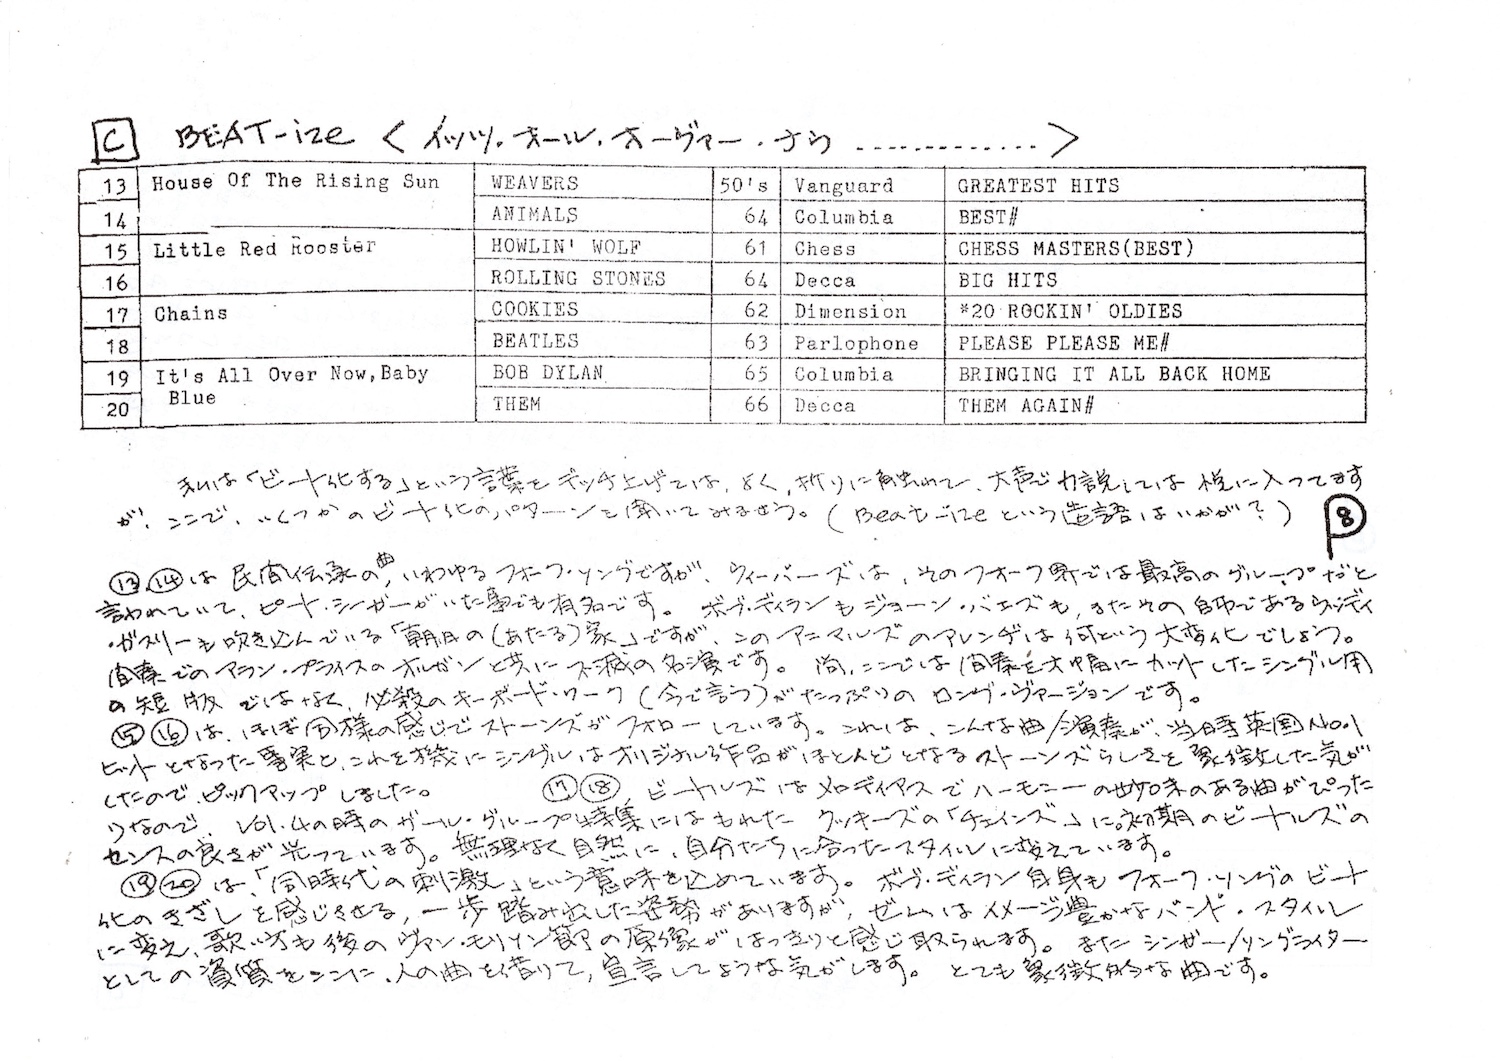 C BEAT-ize <イッツ・オール・オーヴァー・ナウ .............>
13 House Of The Rising Sun WEAVERS 50's Vanguard GREATEST HITS
14 ANIMALS 64 Columbia BEST#
15 Little Red Rooster HOWLIN' WOLF 61 Chess CHESS MASTERS(BEST)
16 ROLLING STONES 64 Decca BIG HITS
17 Chains COOKIES 62 Dimension *20 ROCKIN' OLDIES
18 BEATLES 63 Parlophone PLEASE PLEASE ME#
19 It's All Over Now,Baby BOB DYLAN 65 Columbia BRINGING IT ALL BACK HOME
20 Blue THEM 66 Decca THEM AGAIN#
私は「ビート化する」という言葉をデッチ上げては、よく、折りに触れて、大声で力説しては悦に入ってます
が、ここで、いくつかのビート化のパターンを聞いてみませう。(Beat-izeという造語はいかが?)
P8
⑬⑭は民間伝承の曲、いわゆるフォーク・ソングですが、ウィーバーズは、そのフォーク界では最高のグループだと
言われていて、ピート・シーガーがいた事でも有名です。 ボブ・ディランもジョーン・バエズも、またその師であるウッディ
・ガスリーも吹き込んでいる「朝日の(あたる)家」ですが、このアニマルズのアレンヂは何という大変化でしょう。
間奏でのアラン・プライスのオルガンと共に不滅の名演です。 尚、ここでは間奏を大幅にカットしたシングル用
の短版ではなく、必殺のキーボード・ワーク(今で言う)がたっぷりのロング・ヴァージョンです。
⑮⑯は、ほぼ同様の感じでストーンズがフォローしています。これは、こんな曲/演奏が、当時英国No.1
ヒットとなった事実と、これを機にシングルはオリジナル作品がほとんどとなるストーンズらしさを象徴した気が
したので、ピックアップしました。 ⑰⑱ ビートルズはメロディアスでハーモニーの妙味のある曲がぴった
りなので、Vol.4の時のガール・グループ特集にはもれたクッキーズの「チェインズ」に初期のビートルズの
センスの良さが光っています。無理なく自然に、自分たちに合ったスタイルに変えています。
⑲⑳は、「同時代の刺激」という意味を込めています。ボブ・ディラン自身もフォーク・ソングのビート
化のきざしを感じさせる、一歩踏み出した姿勢がありますが、ゼムはイメージ豊かなバンド・スタイル
に変え、歌い方も後のヴァン・モリソン節の原像がはっきりと感じ取られます。またシンガー/ソングライター
としての資質をここに、人の曲を借りて、宣言してような気がします。 とても象徴的な曲です。